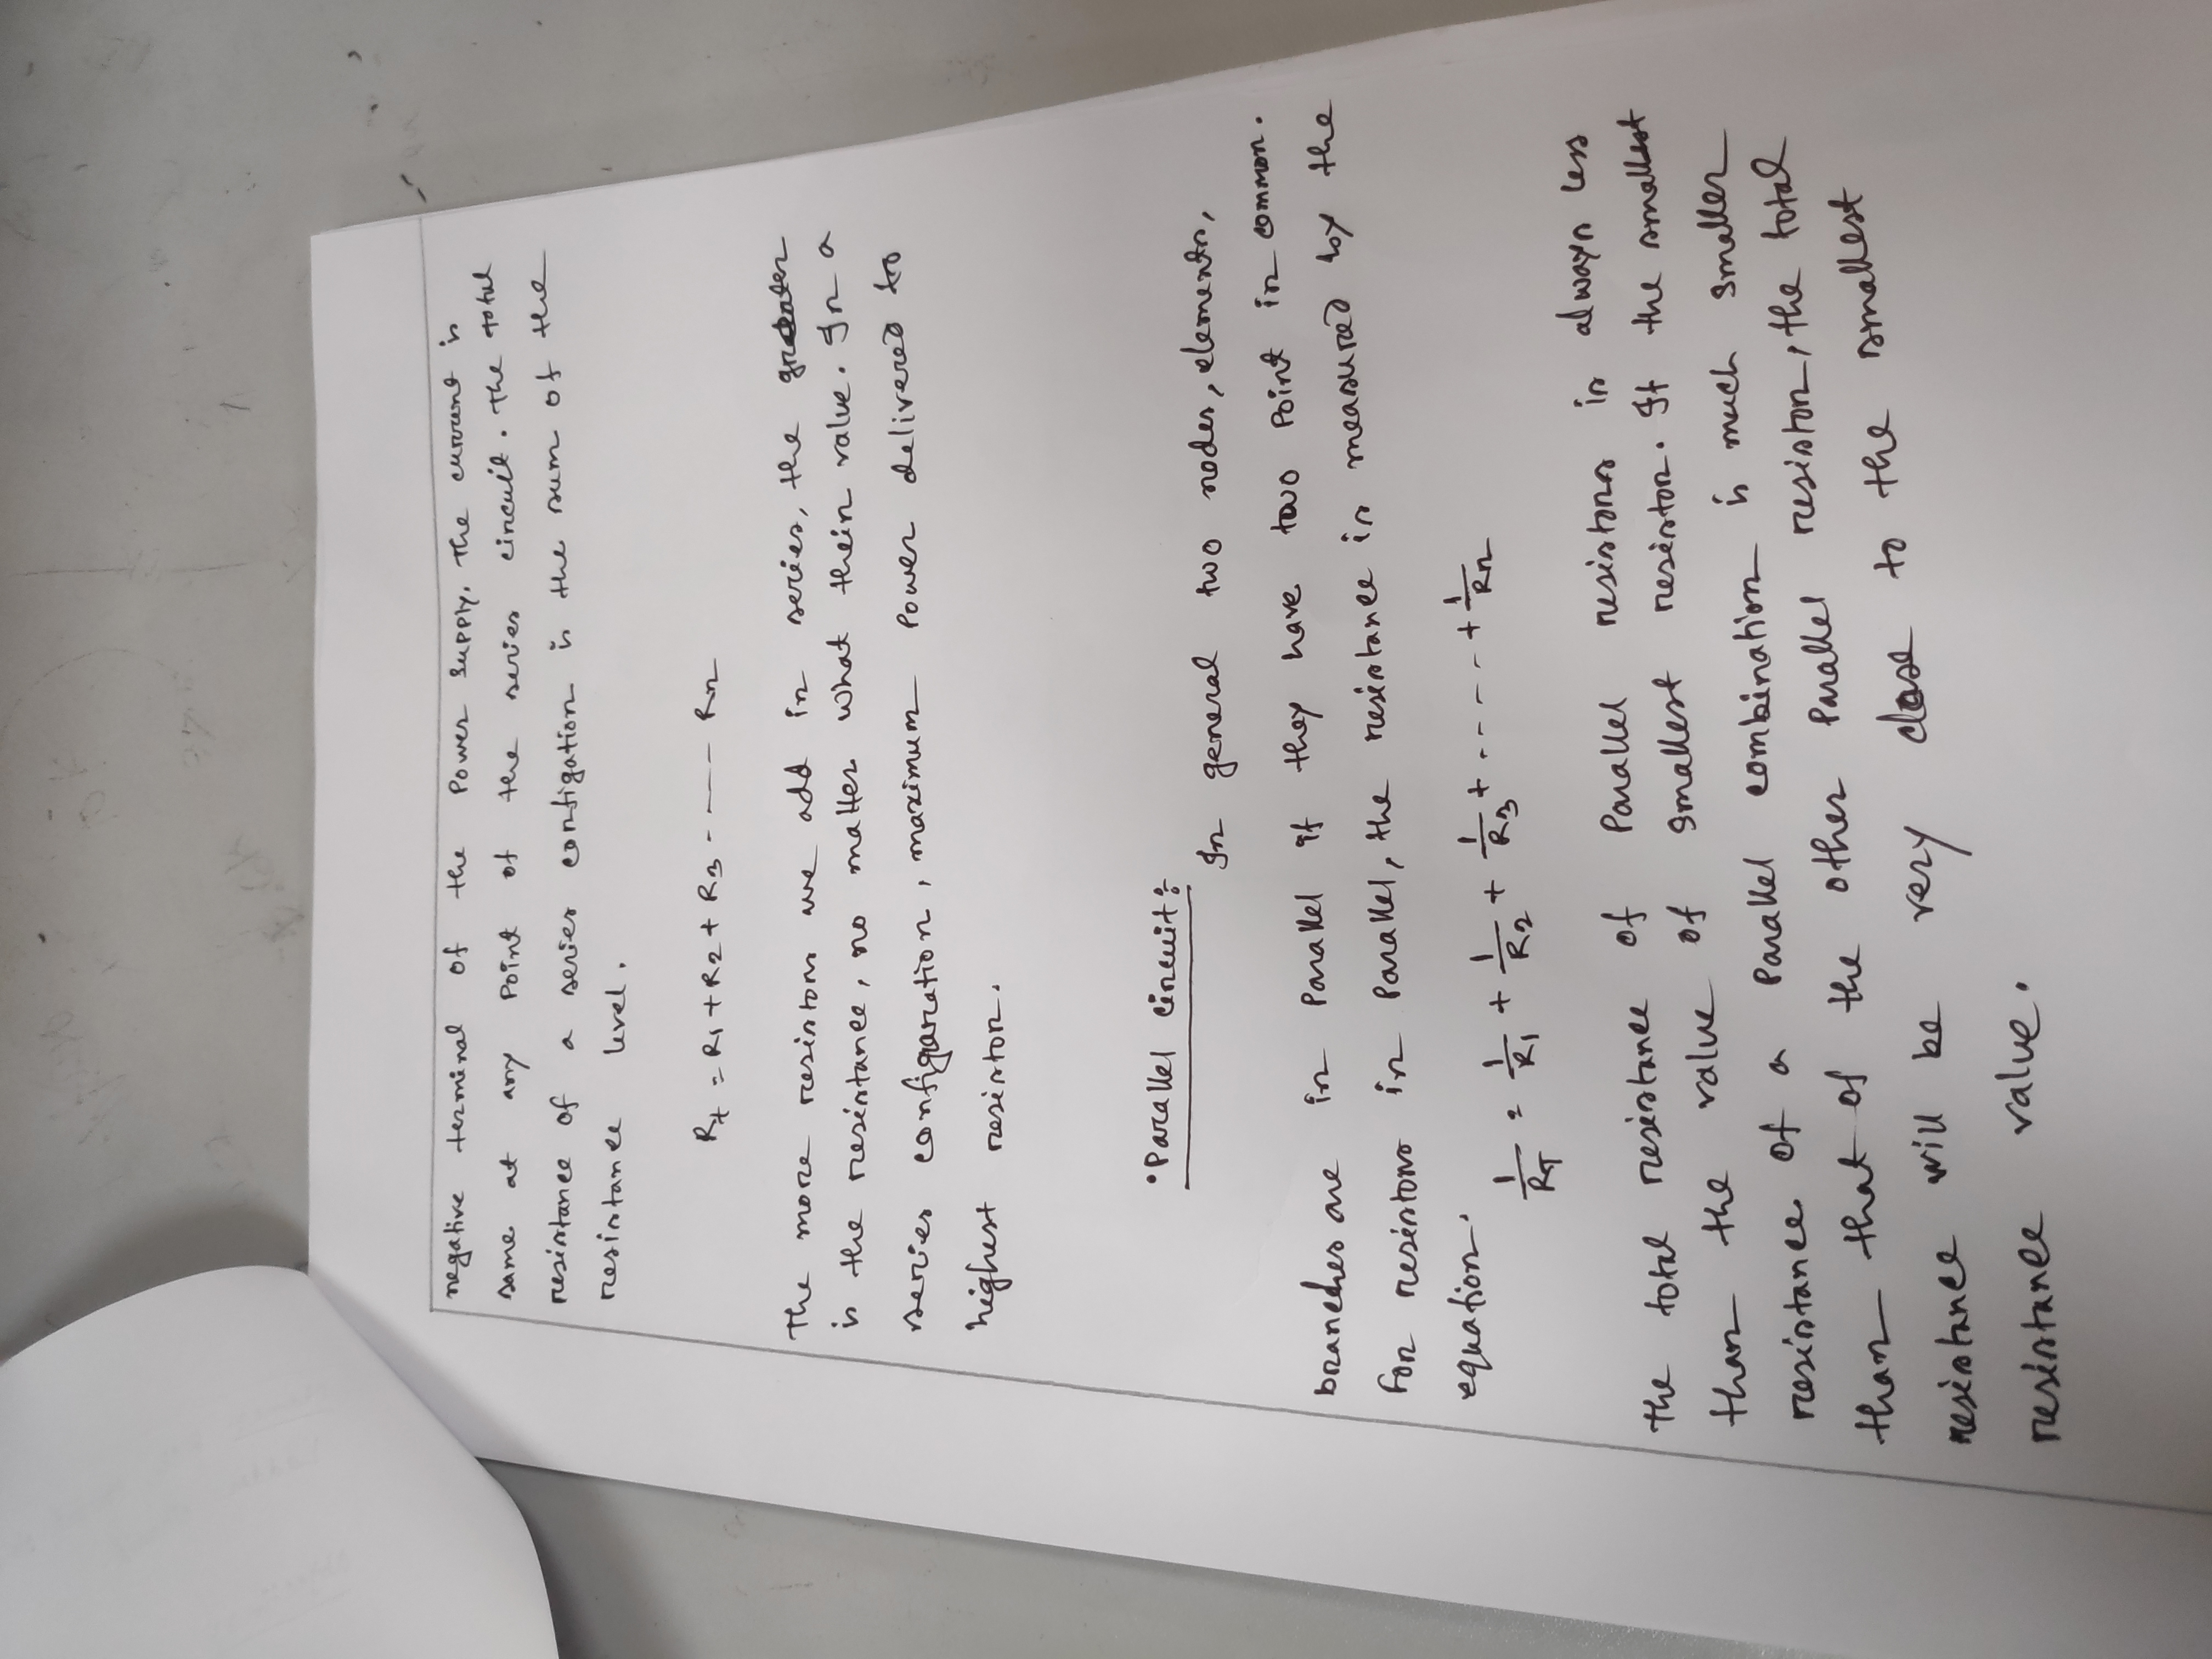 negative terminal of the Power supply. The current is
same at any Point of the series circuit. The total
resistance of a series configation is the sum of the
resistance level.
Rt = R1 + R2 + R3 ----- Rn
The more resistors we add in series, the greater
is the resistance, no matter what their value. In a
series configaration, maximum Power delivered to
highest resistor.
• Parallel circuit:
In general two nodes, elements,
branches are in Parallel if they have two Point in common.
For resistors in Parallel, the resistance is measured by the
equation.
1/RT = 1/R1 + 1/R2 + 1/R3 + ----- + 1/Rn
The total resistance of Parallel resistors is always less
than the value of smallest resistor. If the smallest
resistance of a Parallel combination is much smaller
than that of the other Parallel resistor, the total
resistance will be very close to the smallest
resistance value.